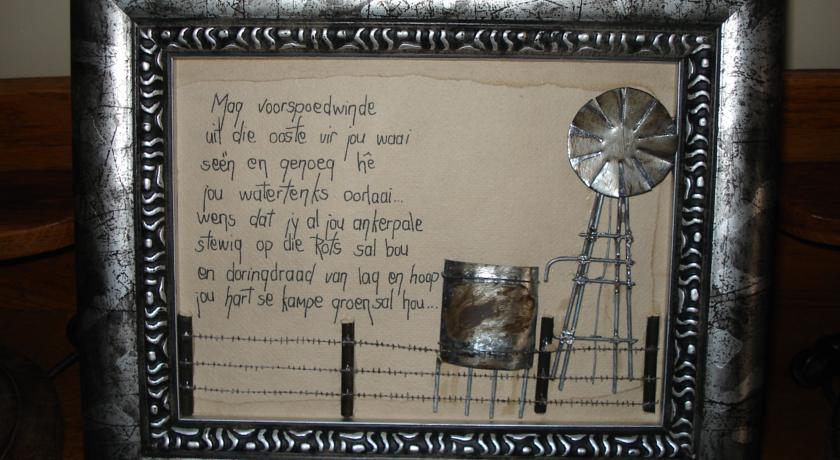 Mag voorspoedwinde
uit die ooste vir jou waai
seën en genoeg hê
jou watertenks oorlaai...
wens dat jy al jou ankerpale
stewig op die Rots sal bou
en doringdraad van lag en hoop
jou hart se kampe groen sal hou...